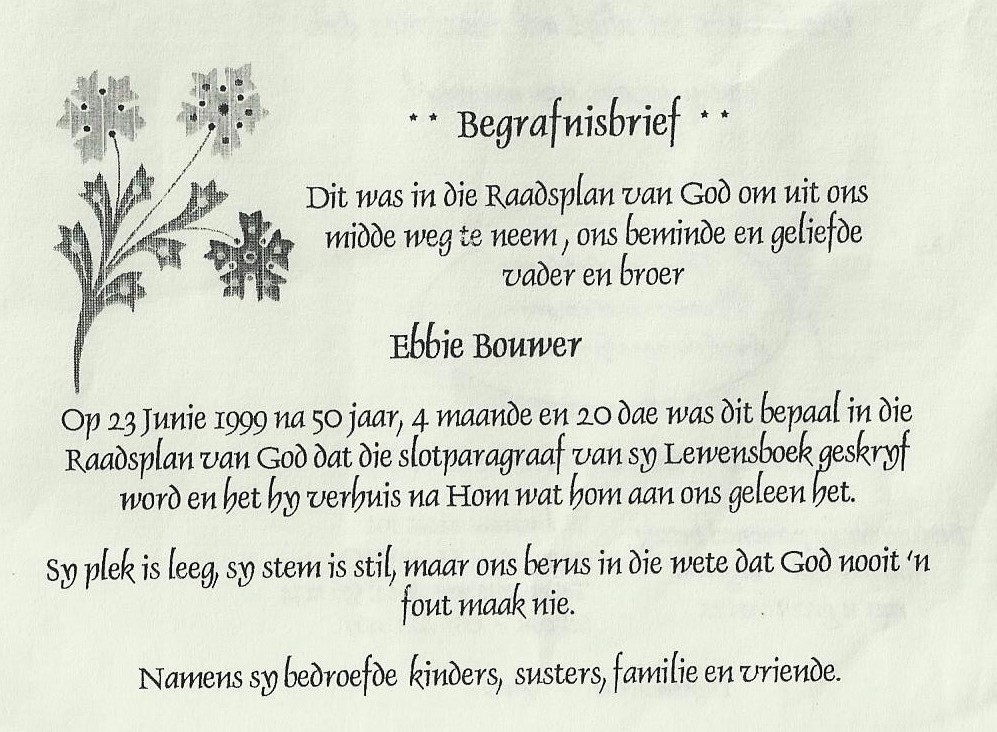 ** Begrafnisbrief **
Dit was in die Raadsplan van God om uit ons
midde weg te neem, ons beminde en geliefde
vader en broer
Ebbie Bouwer
Op 23 Junie 1999 na 50 jaar, 4 maande en 20 dae was dit bepaal in die
Raadsplan van God dat die slotparagraaf van sy Lewensboek geskryf
word en het hy verhuis na Hom wat hom aan ons geleen het.
Sy plek is leeg, sy stem is stil, maar ons berus in die wete dat God nooit 'n
fout maak nie.
Namens sy bedroefde kinders, susters, familie en vriende.